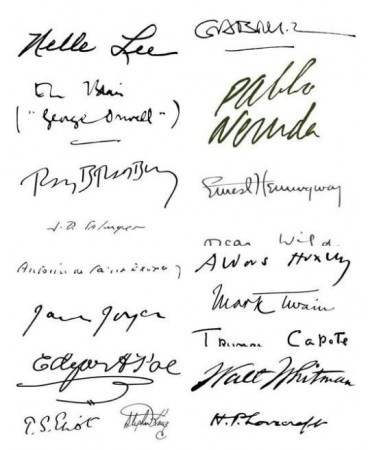 Nelle Lee
Eric Blair
("George Orwell")
Ray Bradbury
J. D. Salinger
Antoine de Saint Exupéry
James Joyce
Edgar A Poe
T. S. Eliot
Stephen King
Pablo
Neruda
Ernest Hemingway
Oscar Wilde
Aldous Huxley
Mark Twain
Truman Capote
Walt Whitman
H. P. Lovecraft